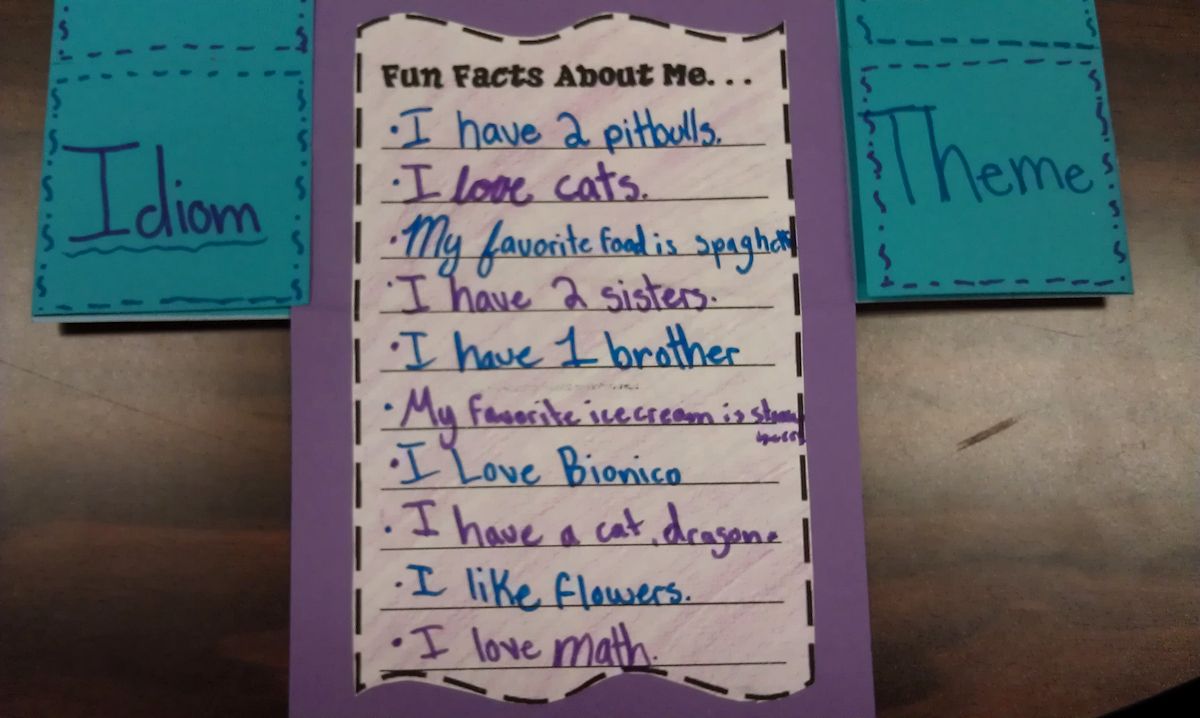 Idiom
Fun Facts About Me...
• I have 2 pitbulls.
• I love cats.
• My favorite food is spaghetti
• I have 2 sisters.
• I have 1 brother
• My favorite icecream is straw
berry
• I Love Bionico
• I have a cat, dragon.
• I like flowers.
• I love math.
Theme